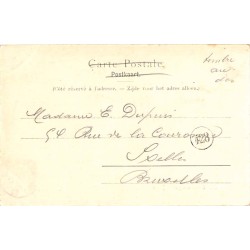 Carte Postale
Postkaart.
(Côté réservé à l'adresse. — Zijde voor het adres alleen.)
timbre
au
dos
Madame E. Dupuis
54 Rue de la Couronne
Ixelles
Bruxelles